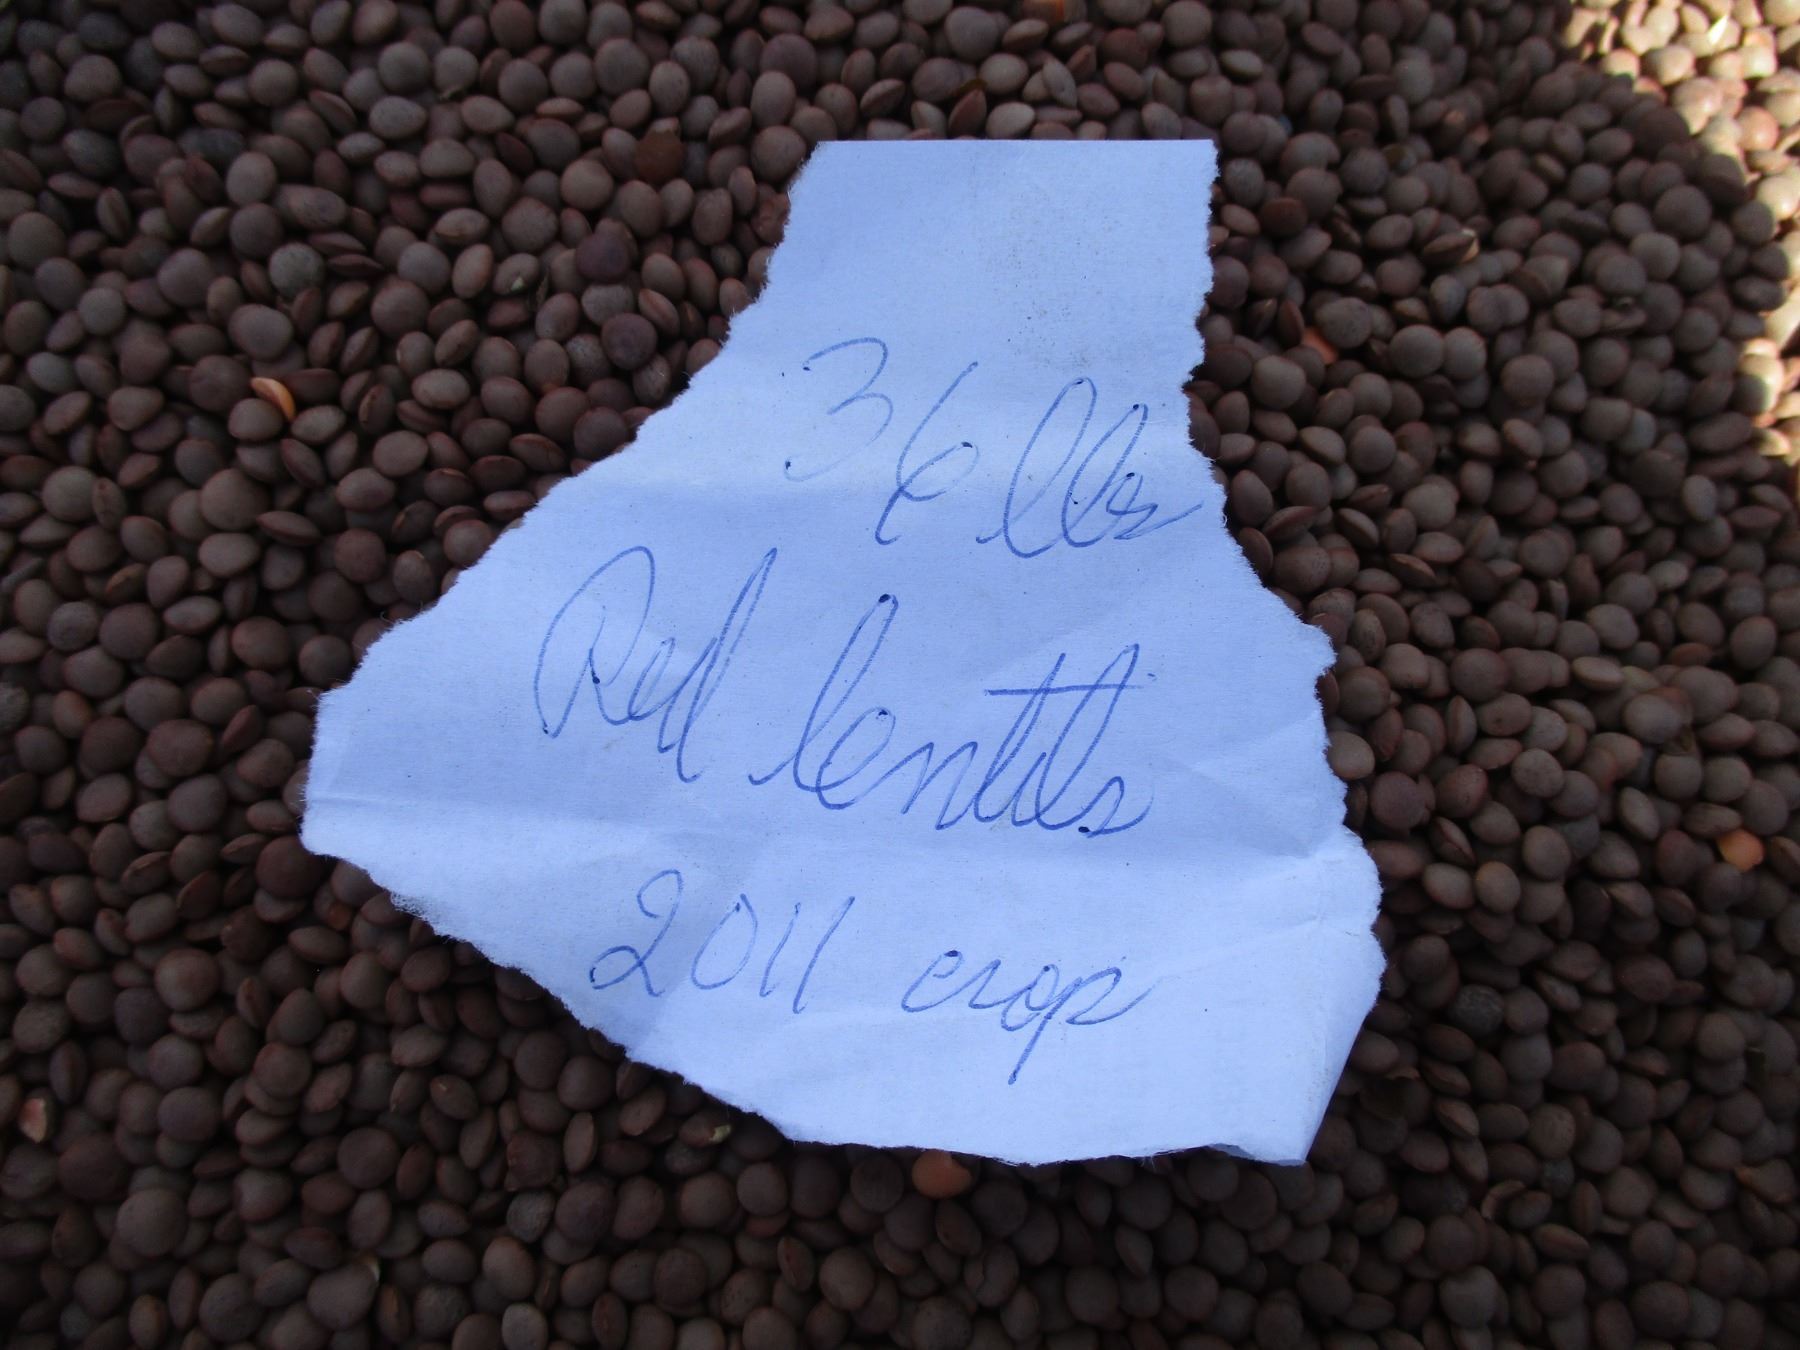 36 lbs
Red lentils
2011 crop